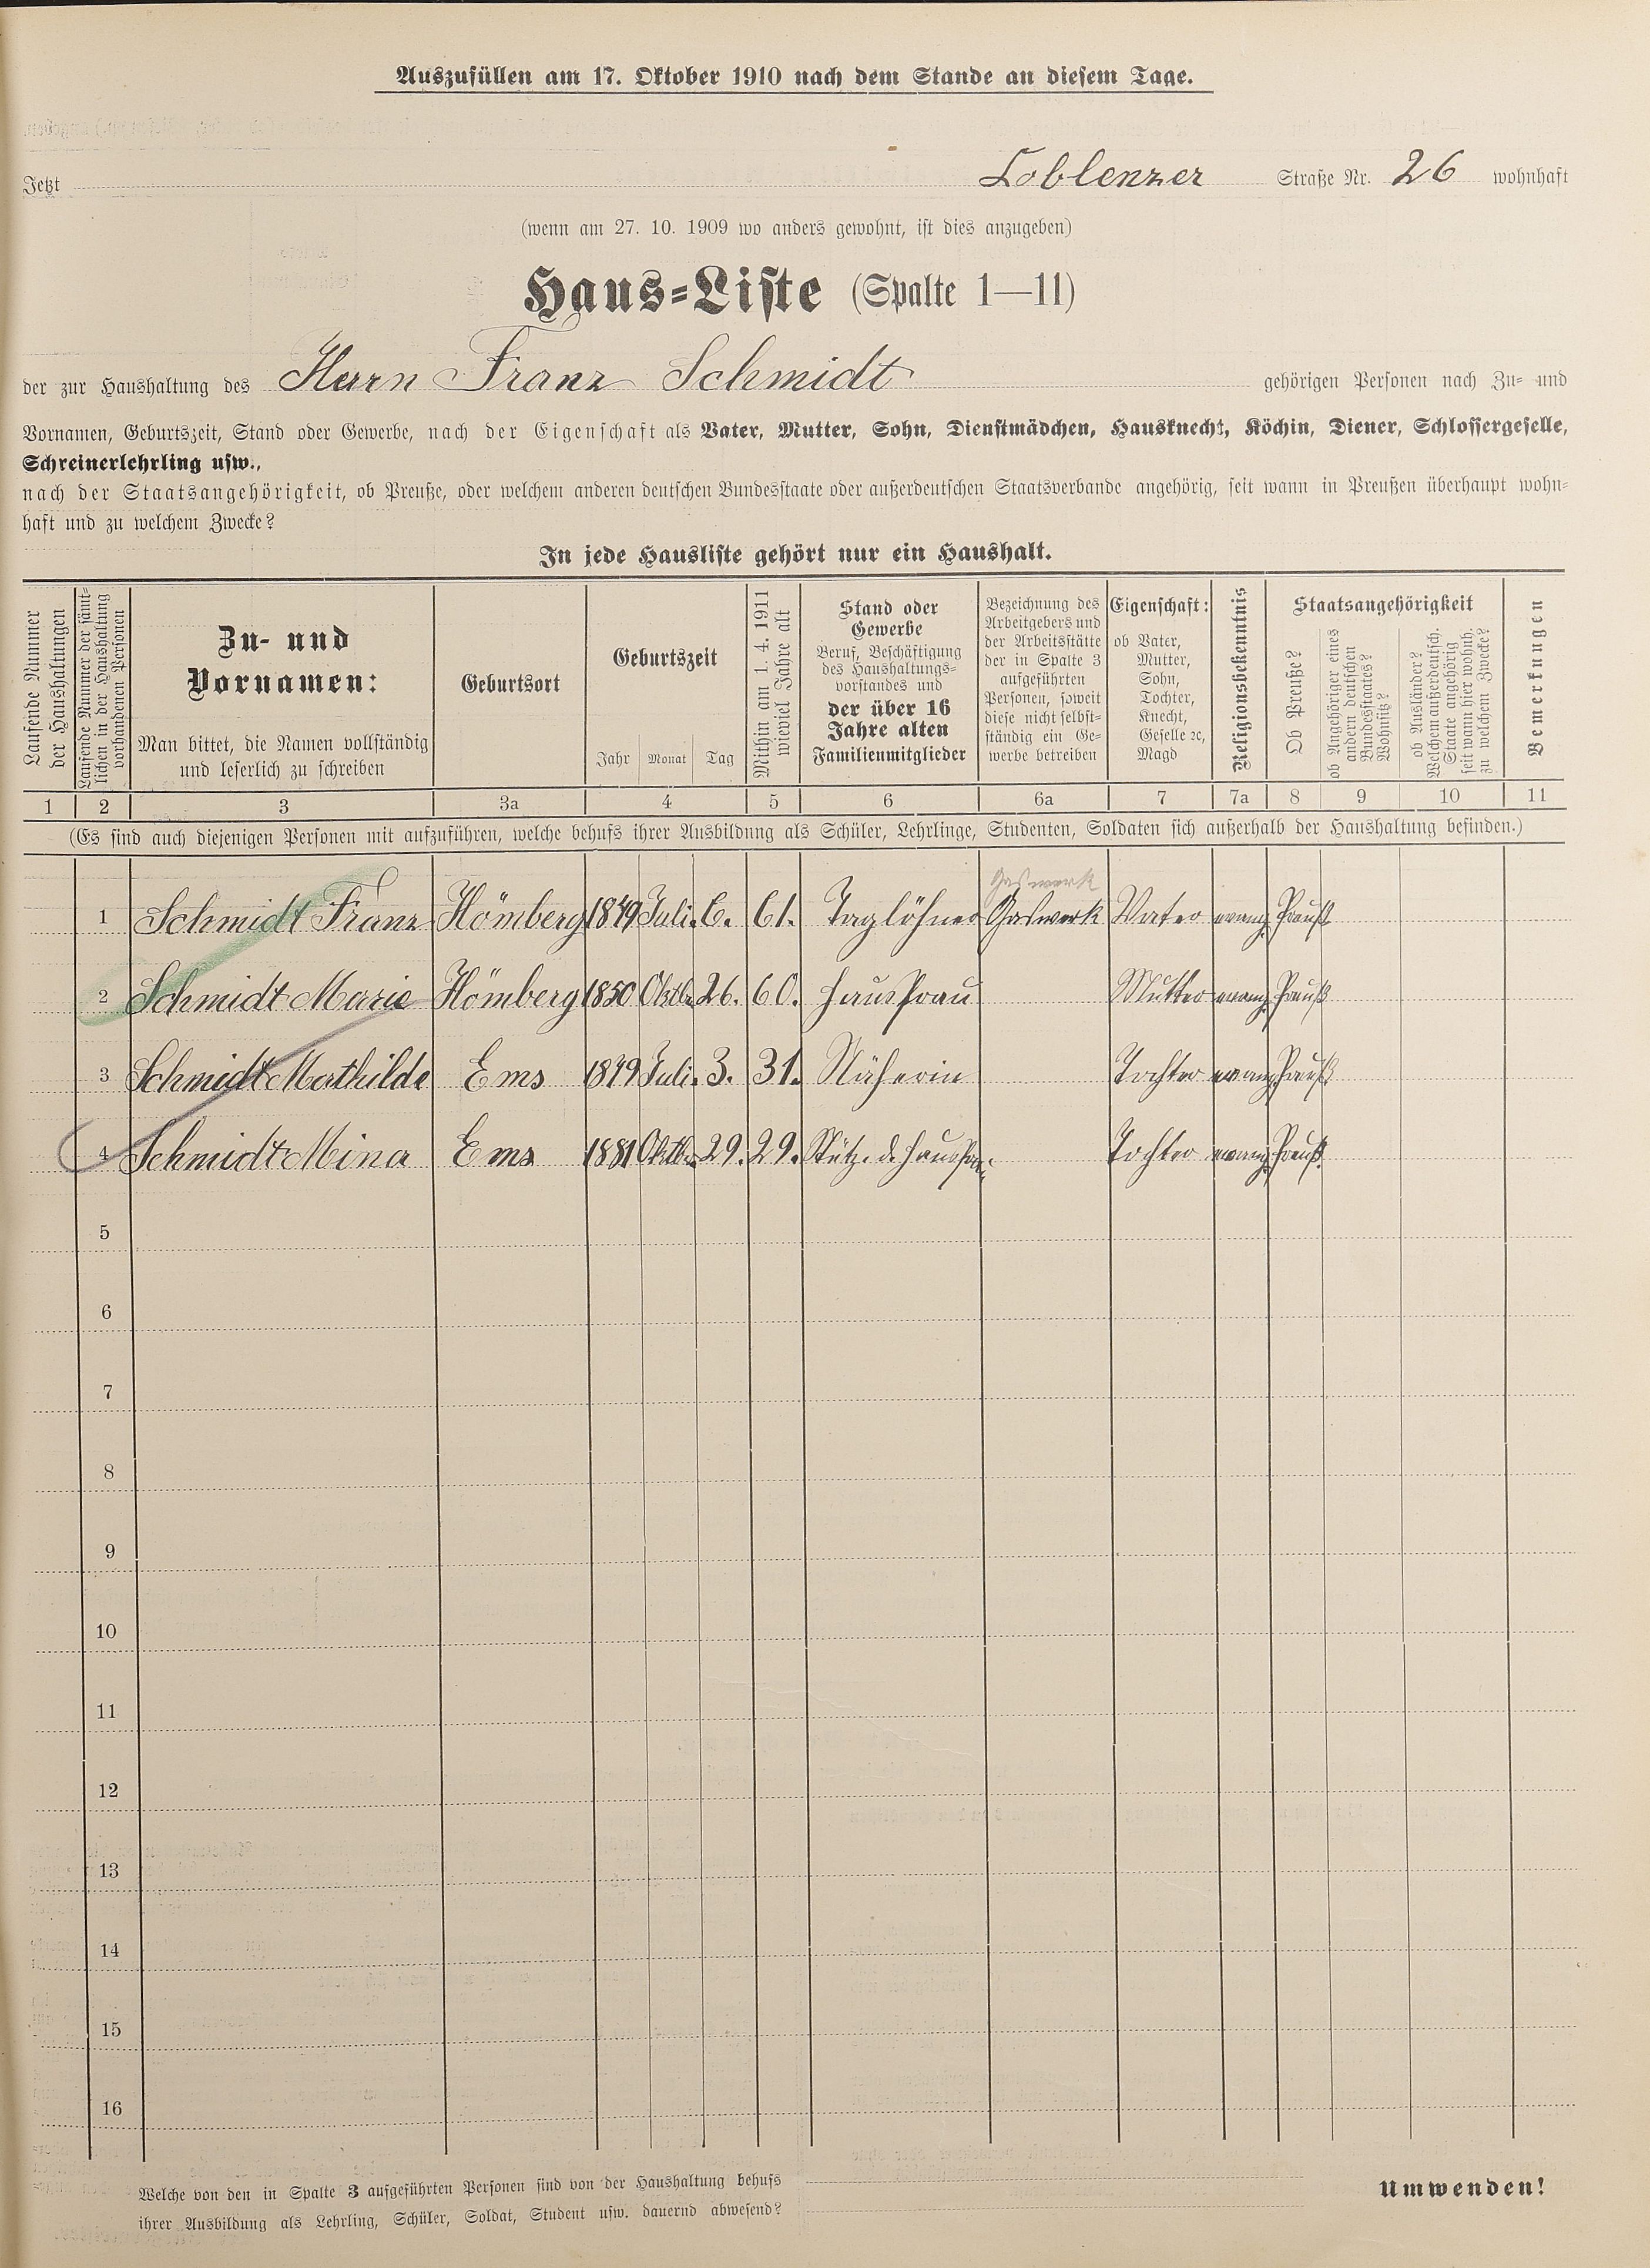 Auszufüllen am 17. Oktober 1910 nach dem Stande an diesem Tage.
Jetzt Coblenzer Straße Nr. 26 wohnhaft
(wenn am 27. 10. 1909 wo anders gewohnt, ist dies anzugeben)
Haus-Liste (Spalte 1—11)
der zur Haushaltung des Herrn Franz Schmidt gehörigen Personen nach Zu- und
Vornamen, Geburtszeit, Stand oder Gewerbe, nach der Eigenschaft als Vater, Mutter, Sohn, Dienstmädchen, Hausknecht, Köchin, Diener, Schlossergeselle,
Schreinerlehrling usw.,
nach der Staatsangehörigkeit, ob Preuße, oder welchem anderen deutschen Bundesstaate oder außerdeutschen Staatsverbande angehörig, seit wann in Preußen überhaupt wohn-
haft und zu welchem Zwecke?
In jede Hausliste gehört nur ein Haushalt.
Laufende Nummer
der Haushaltungen
Laufende Nummer der sämt-
lichen in der Haushaltung
vorhandenen Personen
Zu- und
Vornamen:
Man bittet, die Namen vollständig
und leserlich zu schreiben
Geburtsort
Geburtszeit
Jahr Monat Tag
Mithin am 1. 4. 1911
wieviel Jahre alt
Stand oder
Gewerbe
Beruf, Beschäftigung
des Haushaltungs-
vorstandes und
der über 16
Jahre alten
Familienmitglieder
Bezeichnung des
Arbeitgebers und
der Arbeitsstätte
der in Spalte 3
aufgeführten
Personen, soweit
diese nicht selbst-
ständig ein Ge-
werbe betreiben
Eigenschaft:
ob Vater,
Mutter,
Sohn,
Tochter,
Knecht,
Geselle ꝛc,
Magd
Religionsbekenntnis
Staatsangehörigkeit
Ob Preuße?
ob Angehöriger eines
andern deutschen
Bundesstaates?
Wohnsitz?
ob Ausländer?
Welchem außerdeutsch.
Staate angehörig
seit wann hier wohnh.
zu welchem Zwecke?
Bemerkungen
1 2 3 3a 4 5 6 6a 7 7a 8 9 10 11
(Es sind auch diejenigen Personen mit aufzuführen, welche behufs ihrer Ausbildung als Schüler, Lehrlinge, Studenten, Soldaten sich außerhalb der Haushaltung befinden.)
Gaswerk
1 Schmidt Franz Hömberg 1849 Juli. 6. 61. Taglöhner Gaswerk Vater evang. Preuß
2 Schmidt Marie Hömberg 1850 Oktb. 26. 60. Hausfrau Mutter evang. Preuß
3 Schmidt Merthilde Ems 1879 Juli. 3. 31. Näherin Tochter evang. Preuß
4 Schmidt Mina Ems 1881 Oktb. 29. 29. Stütz. d. Hausfrau. Tochter evang. Preuß.
5
6
7
8
9
10
11
12
13
14
15
16
Welche von den in Spalte 3 aufgeführten Personen sind von der Haushaltung behufs
ihrer Ausbildung als Lehrling, Schüler, Soldat, Student usw. dauernd abwesend?
Umwenden!